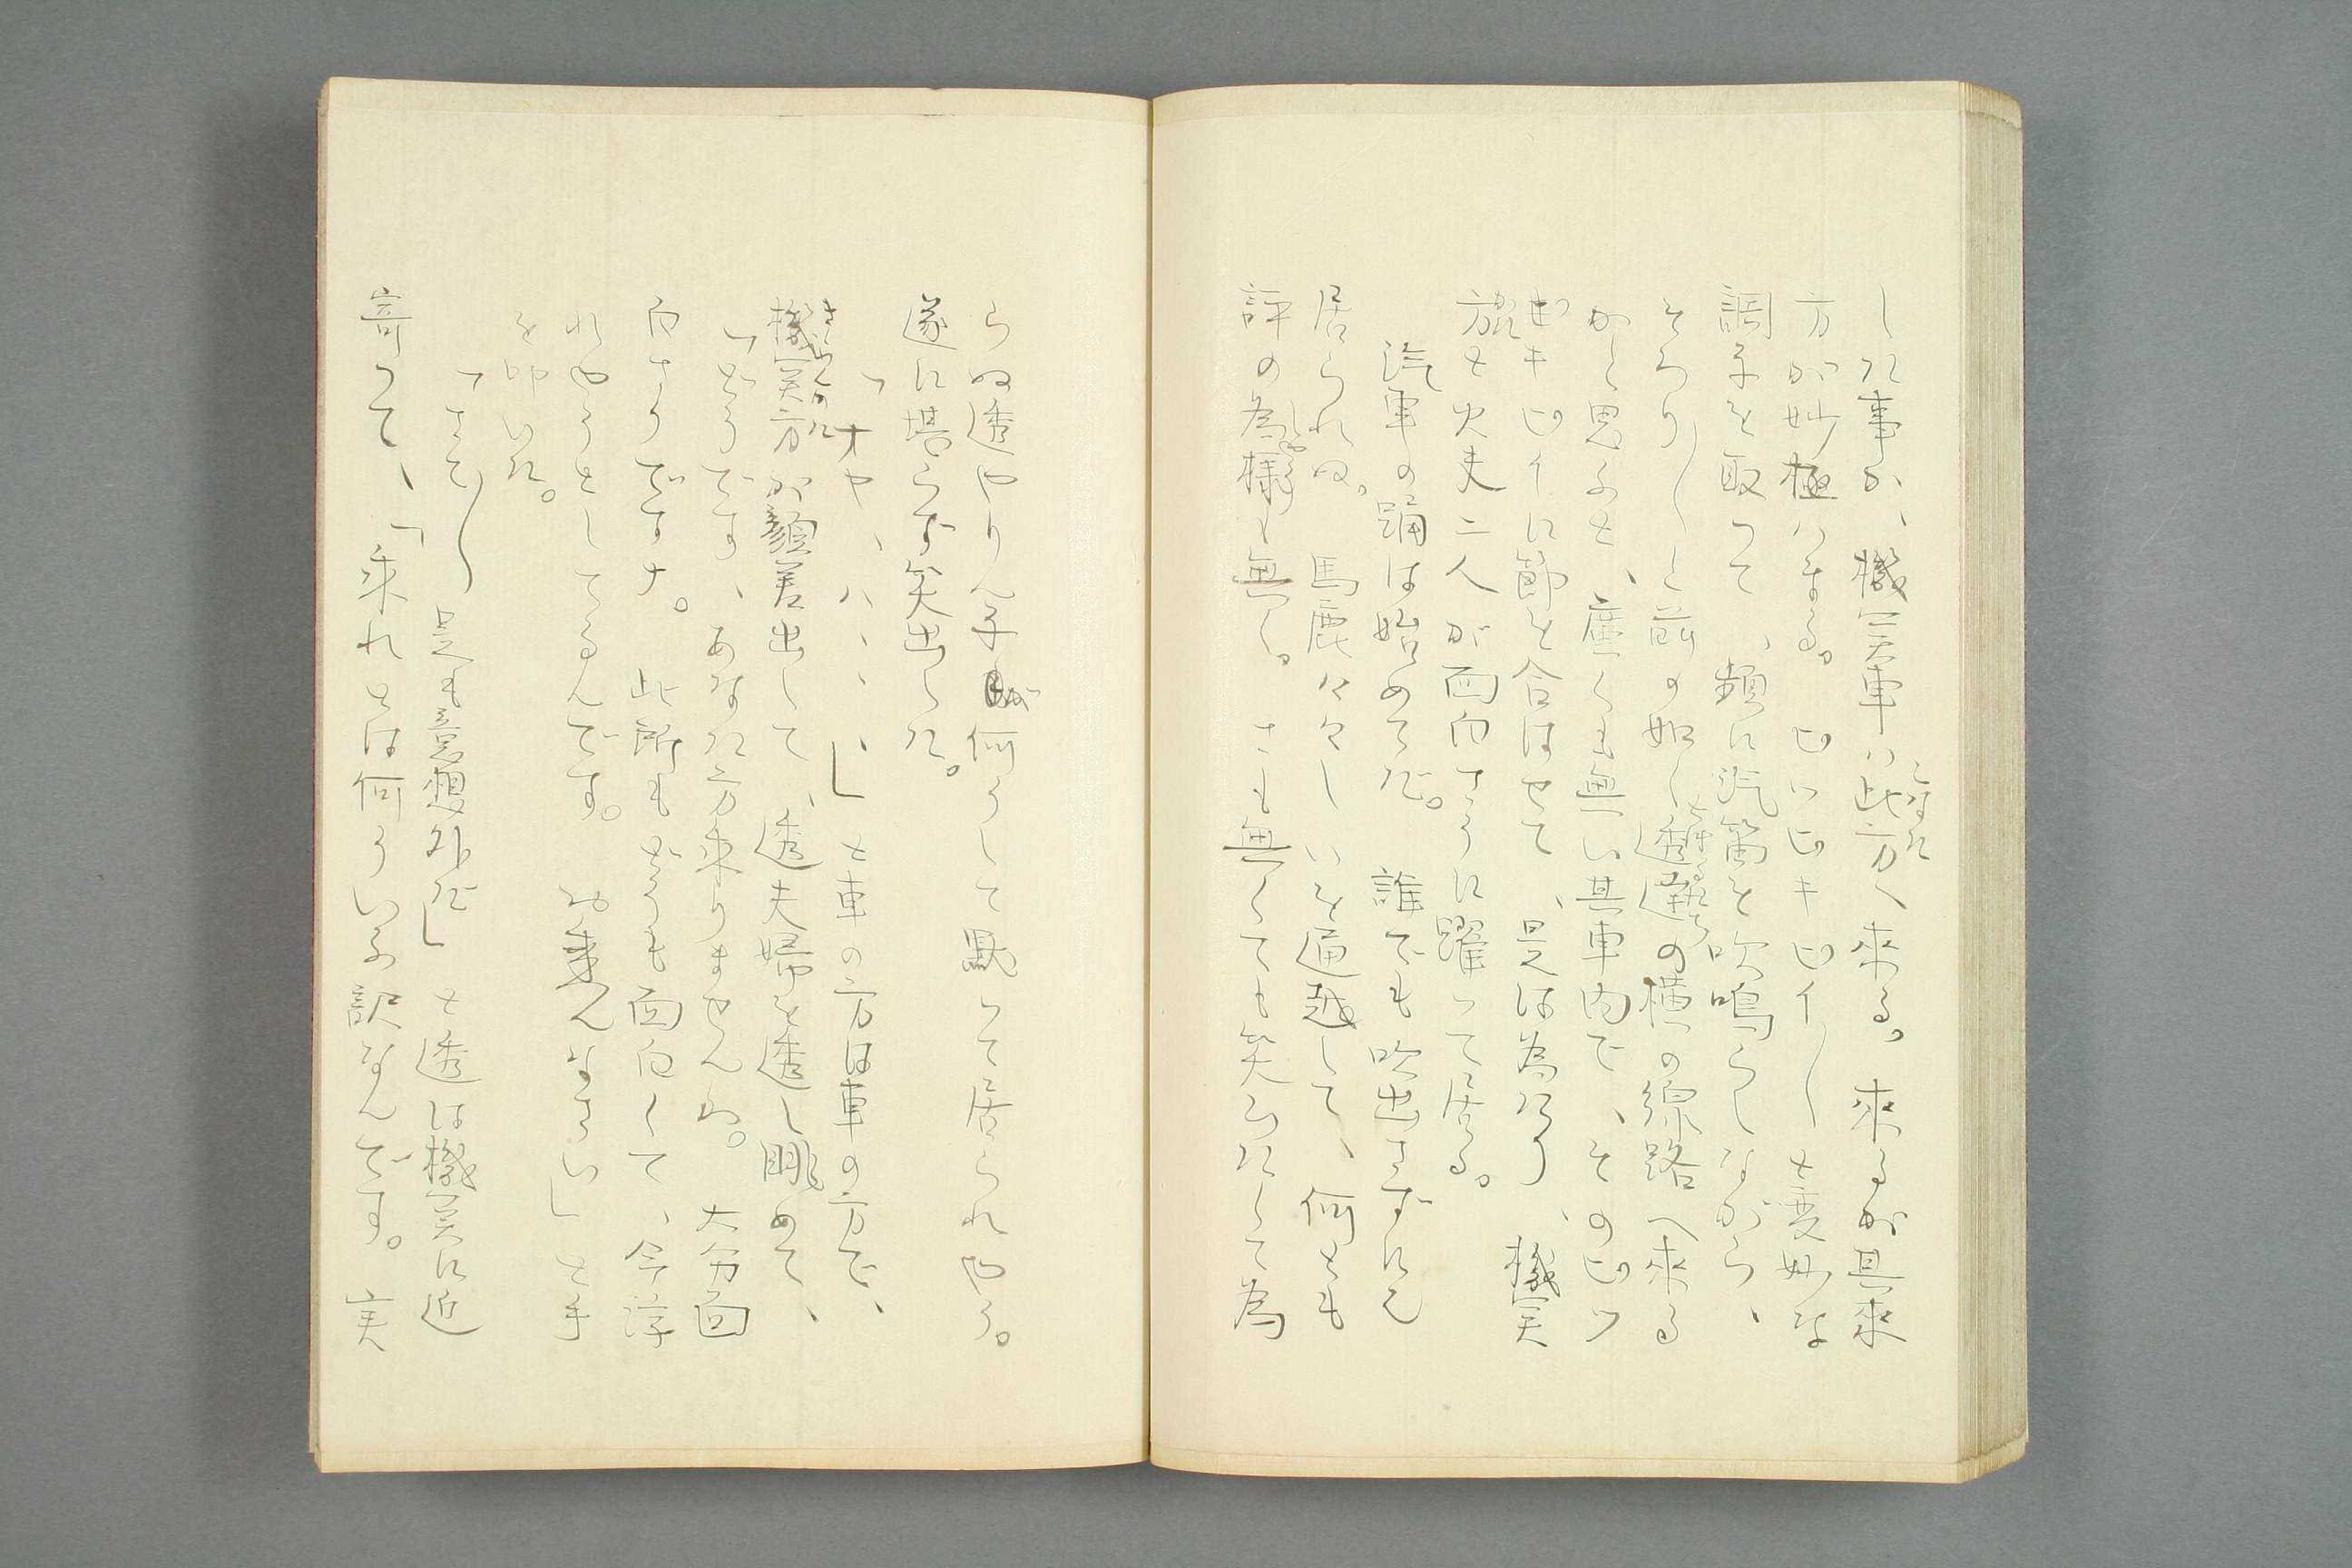 した事か、機実車ハ此方へ来る。来るが其来
方が妙極ハまる。ピッピキピイ〱と変妙な
調子を取つて、頻に汽笛を吹鳴らしながら、
そろり〱と前の如し透達の横の線路へ来る
かと思ふと、塵一も無い其車内で、そのピツ
ピキピイに節を合はせて、是は為たり、機実
方と火夫二人が面白さうに躍つて居る。
汽車の踊は始めてだ。誰でも吹出さずには
居られぬ。馬鹿々々しいを通越して、何とも
評の為様も無く。さも無くても笑らたくて為
らぬ透やりん子が何うして黙つて居られやう。
遂に堪らず笑出した。
「オヤ、ハ、、、」と車の方は車の方で、
機実方が顔差出して、透夫婦を透し眺めて、
「どうです、あなた方乗りませんか。大分面
白さうですナ。此所もどうも面白くて、今浮
れやうとしてるんです。お来んなさい」と手
を叩いた。
「さて〱是も意想外だ」と透は機実に近
寄つて、「乗れとは何ういふ訳なんです。実